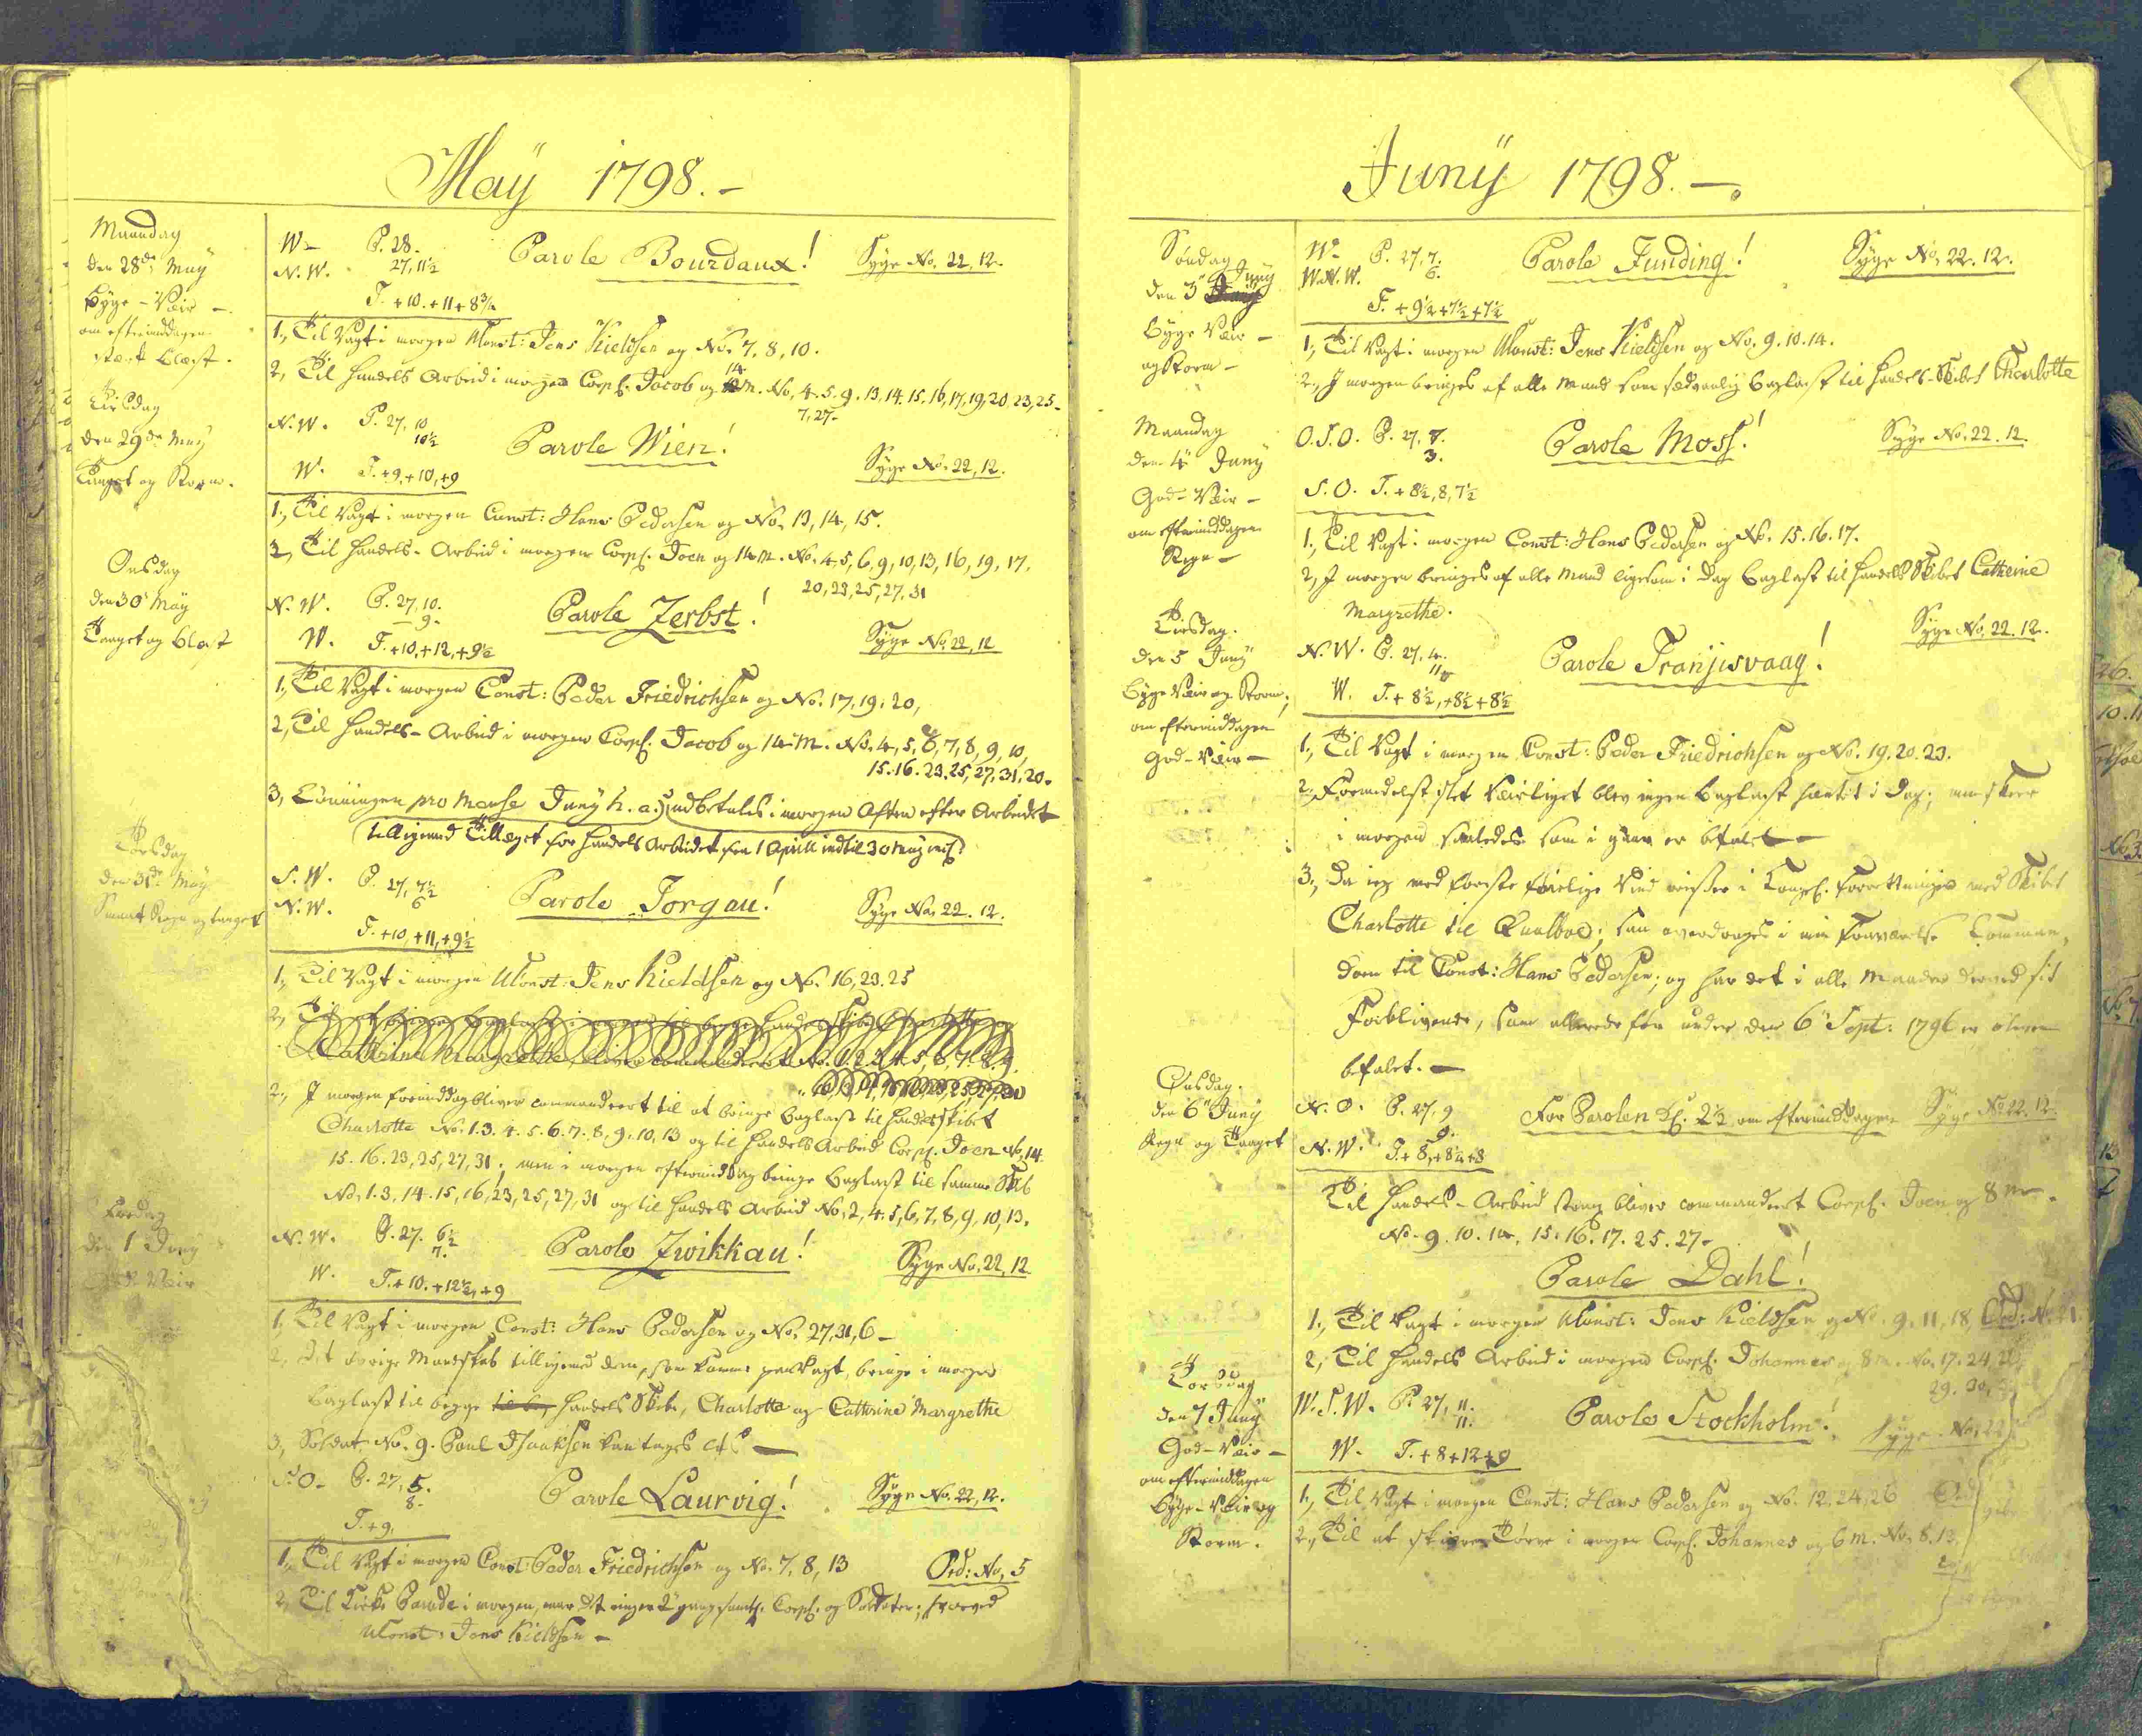 May 1798.-
Maandag
den 28de May
Byge-Veir -
om eftermiddagen
stærk blæst.
W- P. 28.
N.W. 27,11½
T. +10.+11+8¾
Parole Bourdaux!
Syge No. 22, 12.
1, Til Vagt i morgen Monst: Jens Kieldsen og No. 7, 8, 10.
2, Til Handels Arbeid i morgen Corpl. Jacob og 14 M. No. 4.5.9.13.14.15.16,17,19,20,23,25-
7,27-
Tirsdag
den 29de May
Taaget og Storm.
N.W. P. 27,10
10½
W. T.+9,+10,+9
Parole Wien!
Syge No. 22, 12.
1, Til Vagt i morgen Const: Hans Pedersen og No. 13, 14, 15.
2, Til Handels-Arbeid i morgen Corpl. Joen og 14 M. No. 4,5,6,9,10,13,16,19,17.
20,23,25,27,31
Onsdag
den 30 May
Taaget og blæst
N.W. P. 27,10.
9.
W. T.+10,+12,+9½
Parole Zerbst!
Syge No. 22, 12
1, Til Vagt i morgen Const: Peder Friedrichsen og No. 17, 19, 20,
2, Til Handels-Arbeid i morgen Corpl. Jacob og 14 M. No. 4, 5, 6, 7, 8, 9, 10,
15.16.23.25,27,31,20.
3, Lønningen pro Mense Juny h. a. udbetales i morgen Aften efter Arbeidet
tilligemed Tillæget for Handels Arbeidet fra 1 April indtil 30 May incl.
Torsdag
den 31de May
Smaat Regn og taaget
S.W. P. 27,7½
N.W. 6
T.+10,+11,+9½
Parole Torgau!
Syge No. 22. 12.
1, Til Vagt i morgen Monst: Jens Kieldsen og No. 16,23.25
2, I morgen formiddag bliver commanderet til at bringe Baglast til Handelsskibet
Charlotte No. 1.3.4.5.6.7.8.9.10,13 og til Handels Arbeid Corpl. Joen No. 14.
15.16.23,25,27,31; men i morgen eftermiddag bringe Baglast til samme Skib
No. 1.3.14.15,16,23,25,27,31 og til Handels Arbeid No. 2,4,5,6,7,8,9,10,13.
Fredag
den 1 Juny
Veir
N.W. P. 27. 6½
7.
W. T.+10.+12½,+9
Parole Zwikkau!
Syge No. 22, 12
1, Til Vagt i morgen Const: Hans Pedersen og No. 27,31,6-
2, Det øvrige Mandskab tilligemed dem, som komme paa Vagt, bringe i morgen
Baglast til begge Handels Skibe, Charlotte og Cathrine Margrethe
3, Soldat No. 9. Poul Isaaksen
S.O- P. 27,5.
8.
T.+9,
Parole Laurvig!
Syge No. 22, 12.
1, Til Vagt i morgen Const: Peder Friedrichsen og No. 7, 8, 13
Ord: No, 5
2, Til Kirke Parade i morgen, naar det ringer 2 gang samtl. Corpl. og Soldater; hvorved
Monst: Jens Kieldsen -
Juny 1798.-.
Søndag
den 3 Juny
Byge Veir -
og Storm -
W- P. 27,7.
W.N.W. 6.
T. +9½+7½+7½
Parole Funding!
Syge No. 22. 12.
1, Til Vagt i morgen Monst: Jens Kieldsen og No. 9.10.14.
2, I morgen bringes af alle Mand som sædvanlig Baglast til Handels-Skibet Charlotte
Maandag
den 4 Juny
God-Veir -
om eftermiddagen
Regn -
O.S.O. P. 27,7.
3.
S.O. T.+8½,8,7½
Parole Moss!
Syge No. 22. 12.
1, Til Vagt i morgen Const: Hans Pedersen og No. 15.16.17.
2, I morgen bringes af alle Mand ligesom i Dag Baglast til Handels Skibet Catherine
Margrethe.
Tirsdag.
den 5 Juny
Byge Veir og Storm;
om eftermiddagen
God-Veir -
N.W. P. 27,4.
W. T.+8½,+8½+8½
Parole Tranjisvaag!
Syge No. 22. 12.
1, Til Vagt i morgen Const: Peder Friedrichsen og No. 19.20.23.
2, Formedelst slet Veirliget blev ingen Baglast hentet i Dag; men skeer
i morgen saaledes som i gaar er befalet -
3, Da jeg med første føielige Vind reiser i Kongel. Forretninger med Skibet
Charlotte til Qualboe; saa overdrages i min Fraværelse Comman-
doen til Const: Hans Pedersen; og har det i alle Maader derved sit
Forblivende, som allerede før under den 6 Sept: 1796 er bleven
befalet. -
Onsdag.
den 6 Juny
Regn og Taaget
N.O. P. 27,9
9.
N.W. T.+8,+8¼+8
For Parolen Kl. 2½ om eftermiddagen
Syge No. 22. 12.
Til Handels-Arbeid strax bliver commanderet Corpl. Joen og 8 M.
No. 9.10.14.15.16.17.25.27-
Parole Dahl!
1, Til Vagt i morgen Monst: Jens Kieldsen og No. 9.11.18, Ord: No. 21.
2, Til Handels Arbeid i morgen Corpl. Johannes og 8 M. No. 17.24,
29.30,
Torsdag
den 7 Juny
God-Veir -
om eftermiddagen
Byge-Veir og
Storm.
W.S.W. P. 27,11.
11.
W. T.+8+12+9
Parole Stockholm!
Syge No, 22
1, Til Vagt i morgen Const: Hans Pedersen og No. 12,24,26
2, Til at skiære Tørve i morgen Corpl. Johannes og 6 M. No. 8.12.